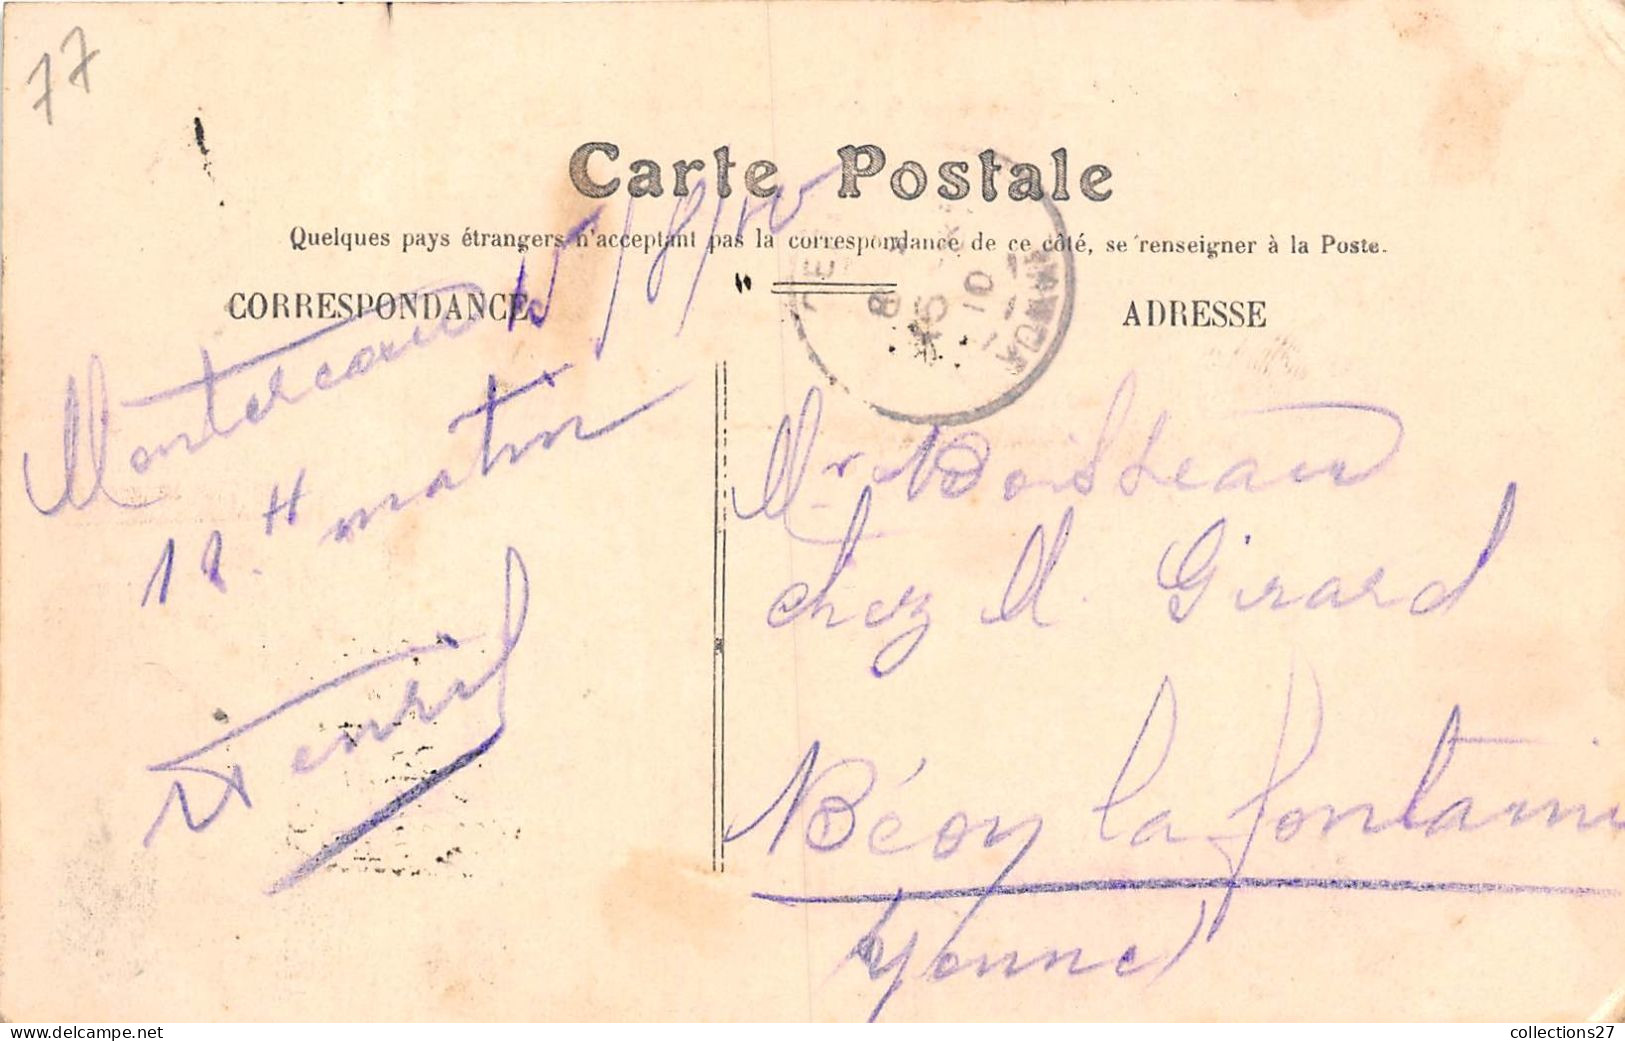 77
Carte Postale
Quelques pays étrangers n'acceptent pas la correspondance de ce côté, se renseigner à la Poste.
CORRESPONDANCE
ADRESSE
15/8/10
matin
Henri
Mr
chez M. Girard
Béon la fontaine
Yonne
YONNE
collections27